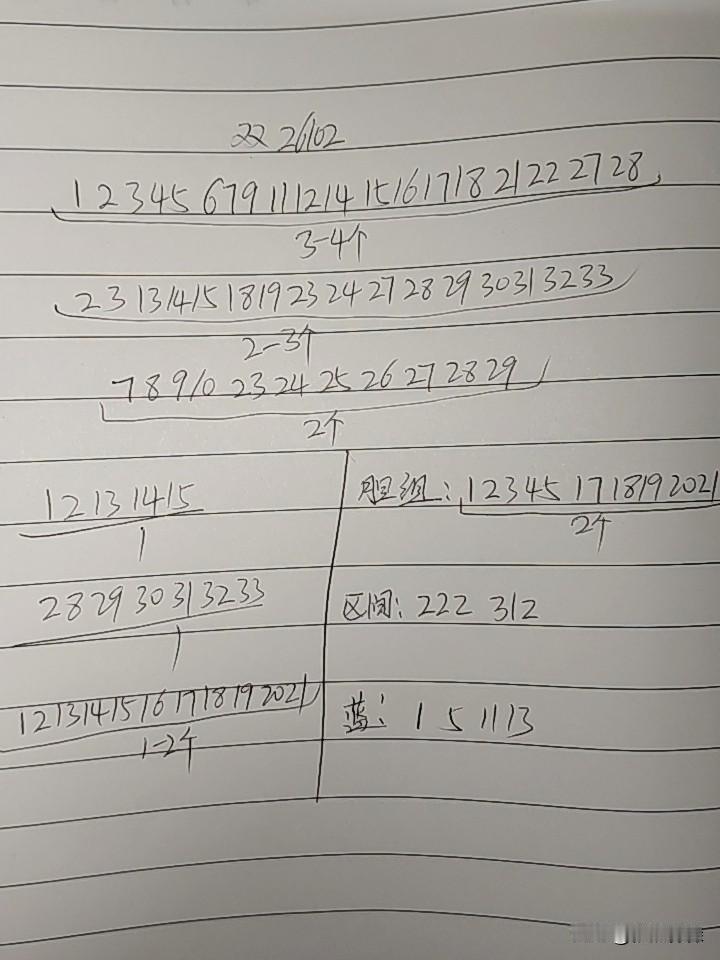 22 26102
1 2 3 4 5 6 7 9 11 12 14 15 16 17 18 21 22 27 28
3-4个
2 3 13 14 15 18 19 23 24 27 28 29 30 31 32 33
2-3个
7 8 9 10 23 24 25 26 27 28 29
2个
12 13 14 15
1
28 29 30 31 32 33
1
12 13 14 15 16 17 18 19 20 21
1-2个
胆组: 1 2 3 4 5 17 18 19 20 21
2个
区间: 222 312
蓝: 1 5 11 13